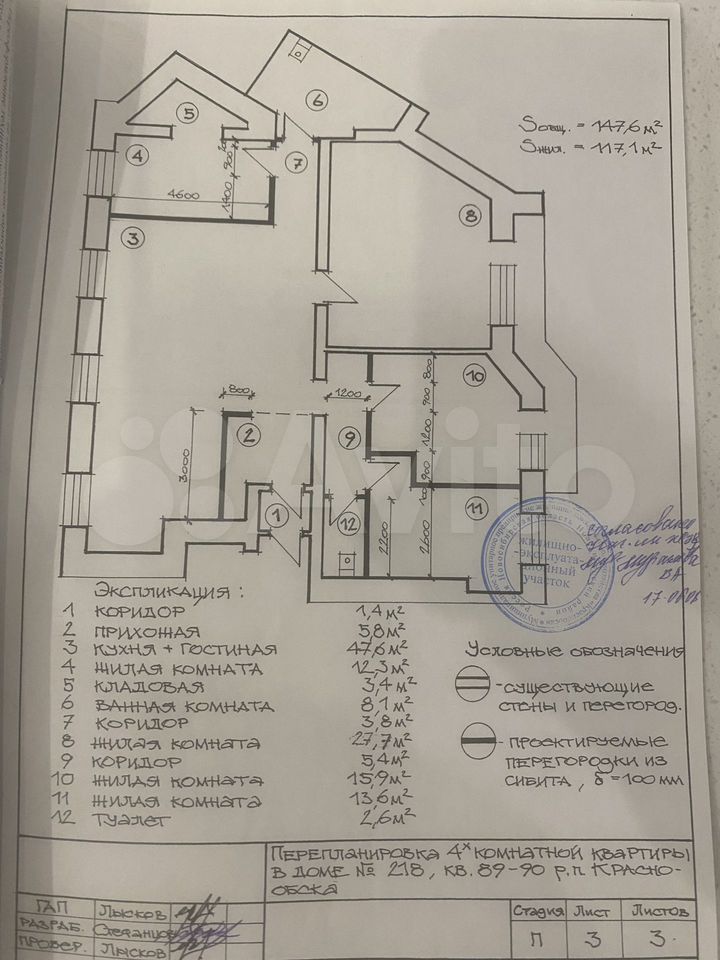 6
5
4
7
3
8
900
1400
4600
Sобщ. = 147,6 м²
Sжил. = 117,1 м²
800
1200
800
900
10
2
9
1200
900
3000
1
12
11
100
2200
2600
Avito
жилищно-
эксплуата-
ционный
участок
согласовано
17.
Экспликация :
1 Коридор 1,4 м²
2 Прихожая 5,8 м²
3 Кухня + гостиная 47,6 м²
4 Жилая комната 12,3 м²
5 Кладовая 3,4 м²
6 Ванная комната 8,1 м²
7 Коридор 3,8 м²
8 Жилая комната 27,7 м²
9 Коридор 5,4 м²
10 Жилая комната 15,9 м²
11 Жилая комната 13,6 м²
12 Туалет 2,6 м²
Условные обозначения
- существующие
стены и перегород.
- проектируемые
перегородки из
сибита, δ=100 мм
Перепланировка 4х комнатной квартиры
в доме № 218, кв. 89-90 р.п Красно-
обска
ГАП Лысков
Разраб. Степанцов
Провер. Лысков
Стадия Лист Листов
П 3 3